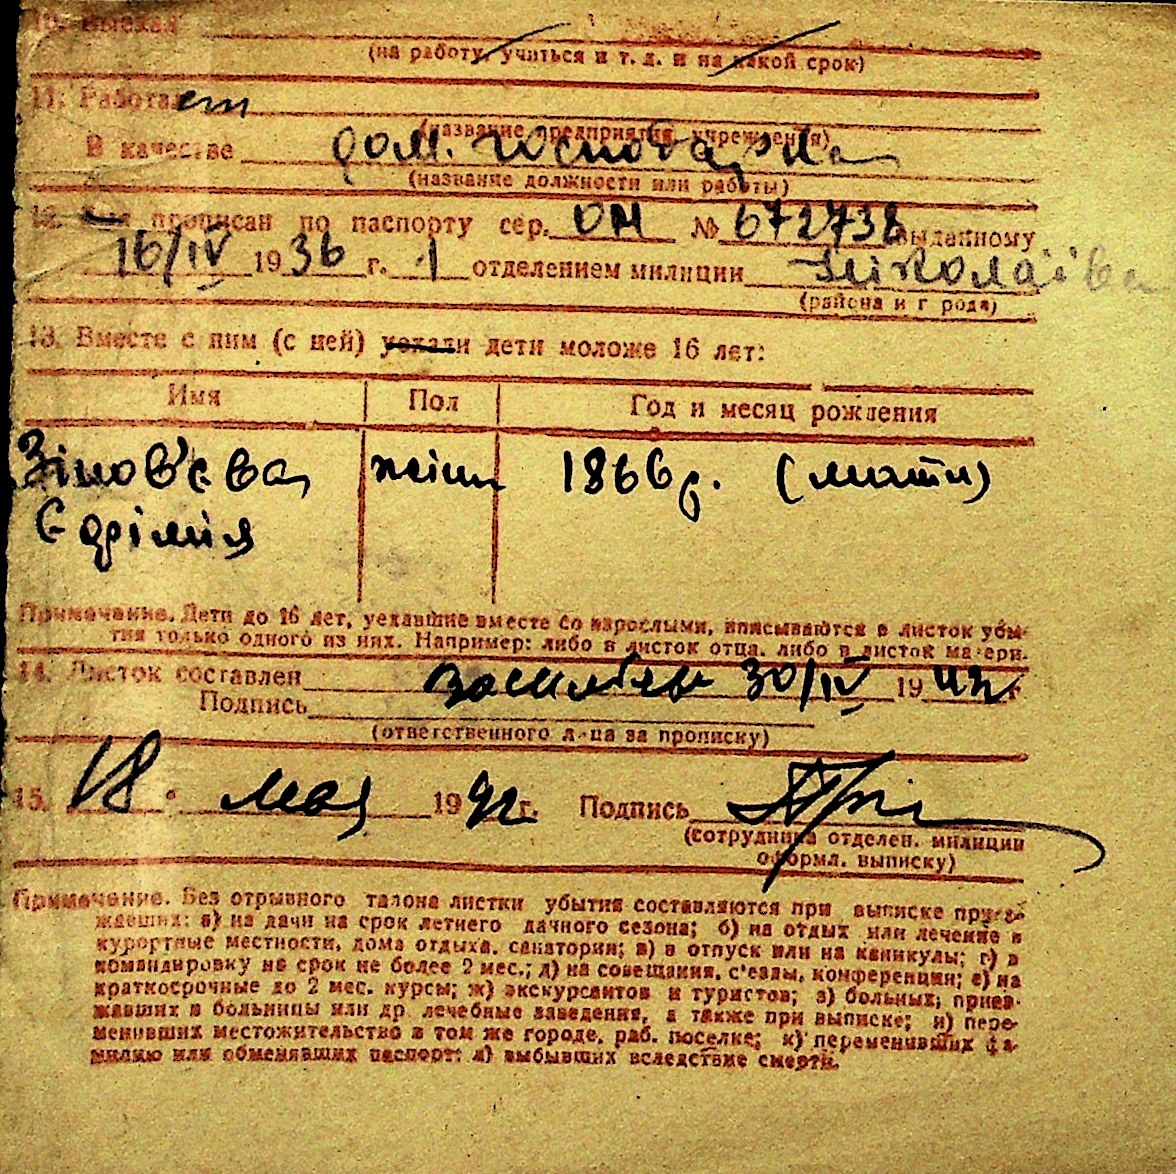 10. Выехал
(на работу, учиться и т. д. и на какой срок)
11. Работает
(название предприятия, учреждения)
В качестве дом. господарка
(название должности или работы)
12. прописан по паспорту сер. ОМ № 672738 выданному
16/IV 1936 г. 1 отделением милиции Ніколаїва
(района и г рода)
13. Вместе с ним (с ней) уехали дети моложе 16 лет:
Имя Пол Год и месяц рождения
Зінов'єва жін 1866 р. (мати)
Єфімія
Примечание. Дети до 16 лет, уехавшие вместе со взрослыми, вписываются в листок убы-
тия только одного из них. Например: либо в листок отца, либо в листок матери.
14. Листок составлен 30/IV 1942 г.
Подпись
(ответственного лица за прописку)
15. 18 мая 1942 г. Подпись
(сотрудника отделен. милиции
оформл. выписку)
Примечание. Без отрывного талона листки убытия составляются при выписке приез-
жавших: а) на дачи на срок летнего дачного сезона; б) на отдых или лечение в
курортные местности, дома отдыха, санатории; в) в отпуск или на каникулы; г) в
командировку на срок не более 2 мес.; д) на совещания, с'езды, конференции; е) на
краткосрочные до 2 мес. курсы; ж) экскурсантов и туристов; з) больных, приез-
жавших в больницы или др. лечебные заведения, а также при выписке; и) пере-
менивших местожительство в том же городе, раб. поселке; к) переменивших фа-
милию или обменявших паспорт; л) выбывших вследствие смерти.